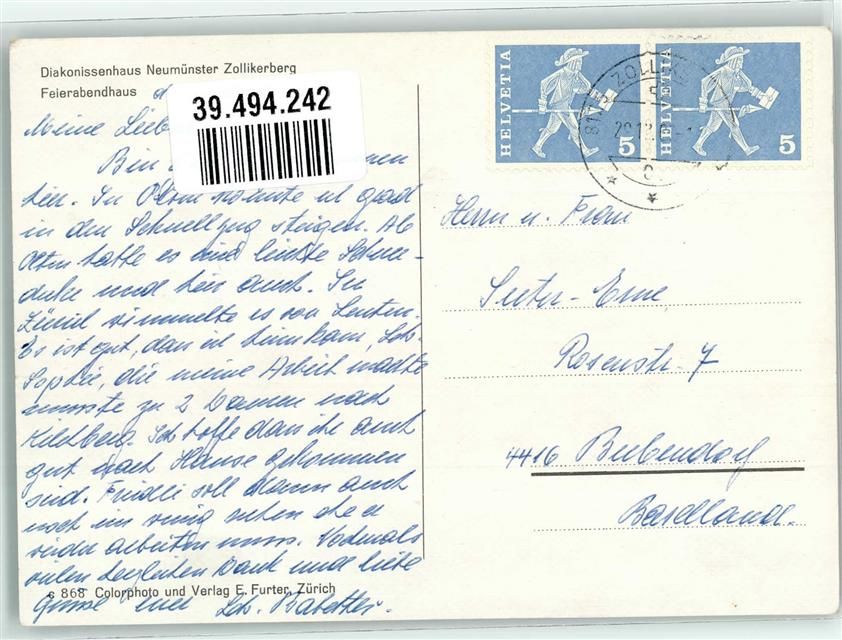 Diakonissenhaus Neumünster Zollikerberg
Feierabendhaus
39.494.242
Meine Lieb
Bin
hier. In Olten konnte ich grad
in den Schnellzug steigen. Ab
Olten hatte es eine leichte Schnee-
decke und hier auch. In
Zürich wimmelte es von Leuten.
Es ist gut, dass ich heimkam, Schw.
Sophie, die meine Arbeit machte
musste zu 2 Damen nach
Kilchberg. Ich hoffe dass ihr auch
gut nach Hause gekommen
seid. Friedli soll dann auch
noch ein wenig ruhen ehe er
wieder arbeiten muss. Nochmals
vielen herzlichen Dank und liebe
Grüsse Schw. Babettli.
c 868 Colorphoto und Verlag E. Furter, Zürich
HELVETIA 5
HELVETIA 5
Herrn u. Frau
Suter-Erne
Rosenstr. 7
4416 Bubendorf
Baselland.